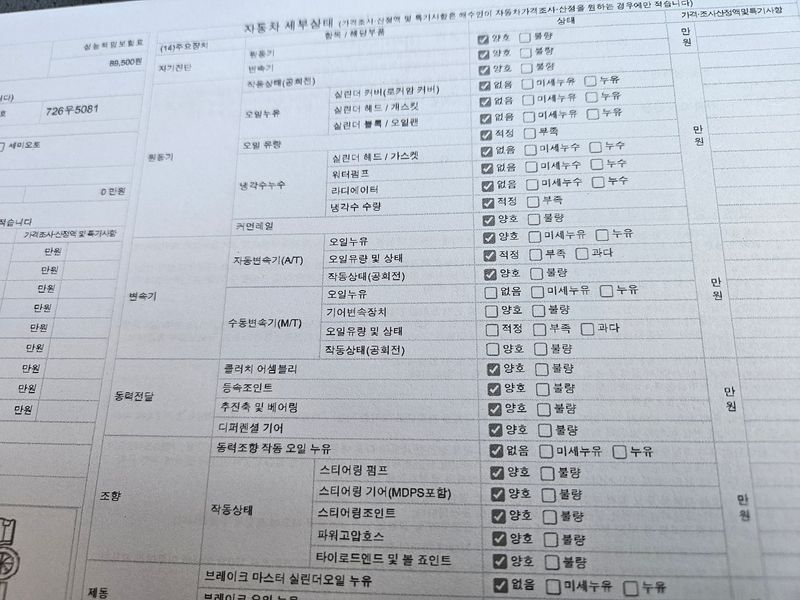 자동차 세부상태 (가격조사·산정액 및 특기사항은 매수인이 자동차가격조사·산정을 원하는 경우에만 적습니다)
성능책임보험료
89,500원
726우5081
세미오토
0 만원
적습니다
가격조사·산정액 및 특기사항
만원
만원
만원
만원
만원
만원
만원
만원
만원
(14)주요장치 항목 / 해당부품 상태 가격·조사산정액및특기사항
자기진단 원동기 양호 불량 만원
변속기 양호 불량
원동기 작동상태(공회전) 양호 불량 만원
오일누유 실린더 커버(로커암 커버) 없음 미세누유 누유
실린더 헤드 / 개스킷 없음 미세누유 누유
실린더 블록 / 오일팬 없음 미세누유 누유
오일 유량 적정 부족
냉각수누수 실린더 헤드 / 가스켓 없음 미세누수 누수
워터펌프 없음 미세누수 누수
라디에이터 없음 미세누수 누수
냉각수 수량 적정 부족
커먼레일 양호 불량
변속기 자동변속기(A/T) 오일누유 양호 미세누유 누유 만원
오일유량 및 상태 적정 부족 과다
작동상태(공회전) 양호 불량
수동변속기(M/T) 오일누유 없음 미세누유 누유
기어변속장치 양호 불량
오일유량 및 상태 적정 부족 과다
작동상태(공회전) 양호 불량
동력전달 클러치 어셈블리 양호 불량 만원
등속조인트 양호 불량
추진축 및 베어링 양호 불량
디퍼렌셜 기어 양호 불량
조향 동력조향 작동 오일 누유 없음 미세누유 누유 만원
작동상태 스티어링 펌프 양호 불량
스티어링 기어(MDPS포함) 양호 불량
스티어링조인트 양호 불량
파워고압호스 양호 불량
타이로드엔드 및 볼 죠인트 양호 불량
제동 브레이크 마스터 실린더오일 누유 없음 미세누유 누유